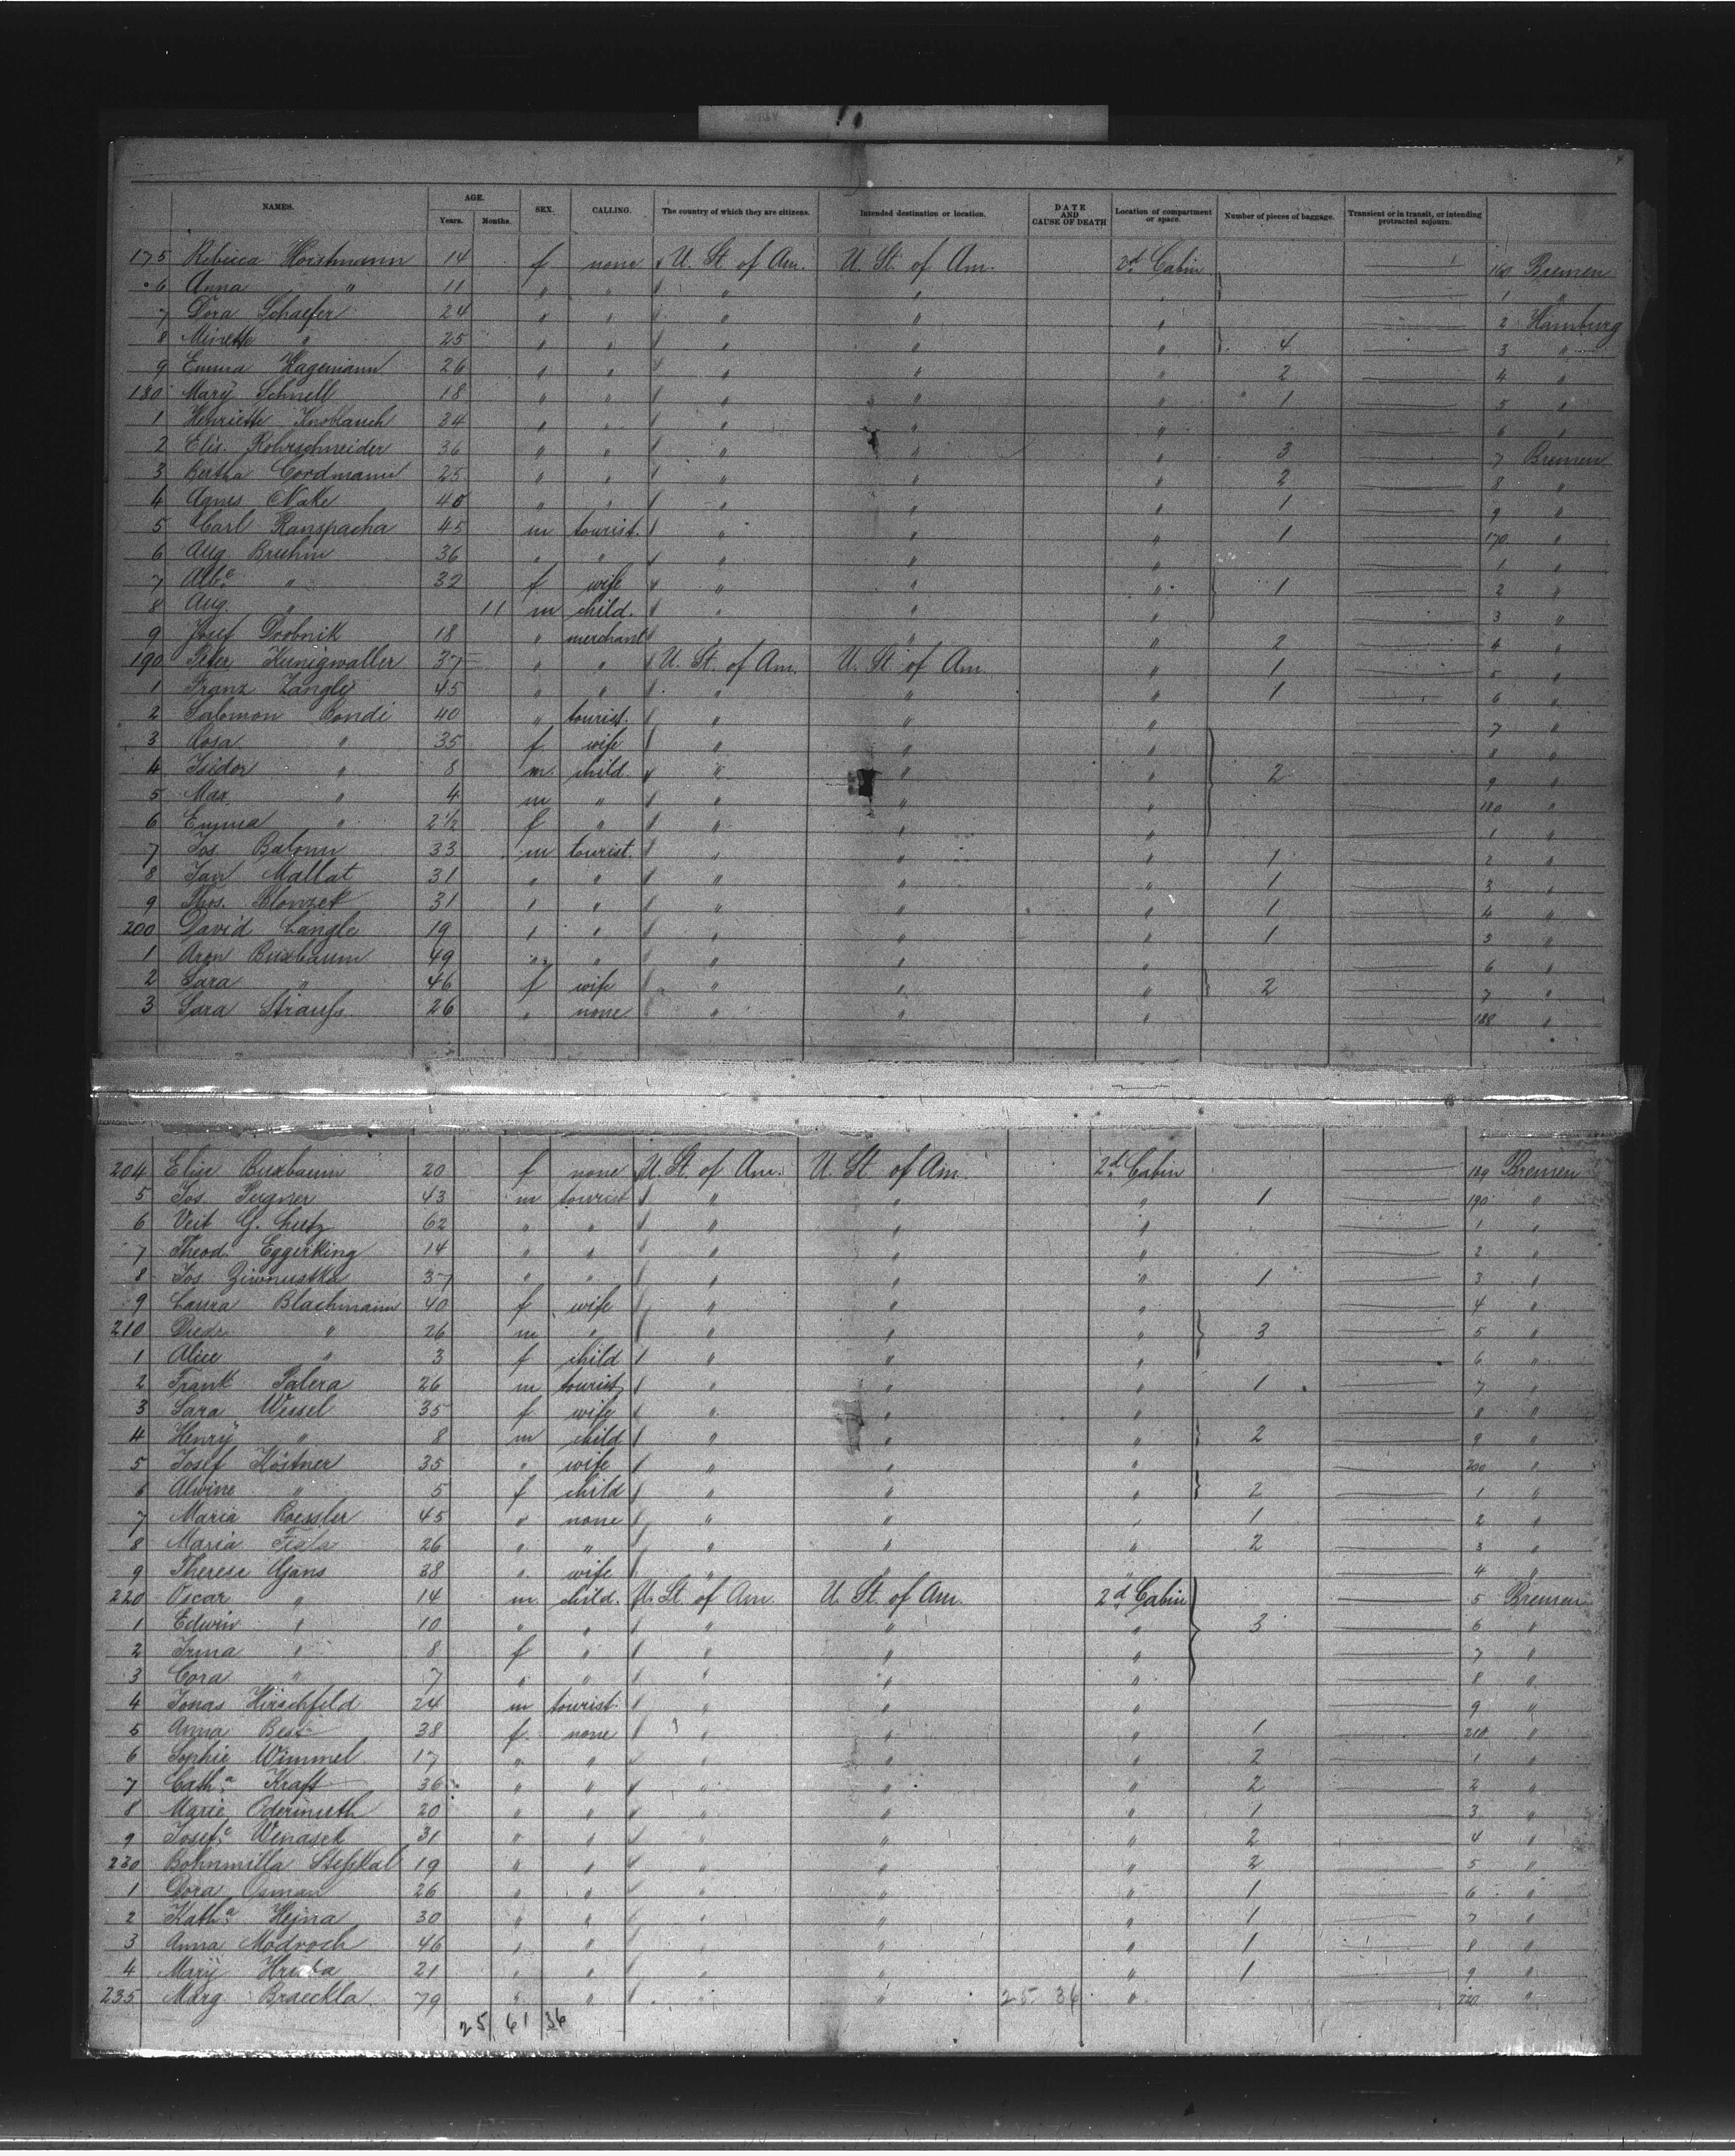 NAMES. AGE. Years. Months. SEX. CALLING. The country of which they are citizens. Intended destination or location. DATE AND CAUSE OF DEATH Location of compartment or space. Number of pieces of baggage. Transient or in transit, or intending protracted sojourn.
175 Rebecca Horstmann 14 f none U. St. of Am. U. St. of Am. 2d Cabin 160 Bremen
6 Anna " 11 " " " " " 1 "
7 Dora Schaefer 24 " " " " " 2 Hamburg
8 Minette " 25 " " " " " 4 3 "
9 Emma Hagemann 26 " " " " " 2 4 "
180 Mary Schnell 18 " " " " " 1 5 "
1 Henriette Knoblauch 34 " " " " " 6 "
2 Elis. Rohrschneider 36 " " " " " 3 7 Bremen
3 Bertha Cordmann 25 " " " " " 2 8 "
4 Agnes Nake 40 " " " " " 1 9 "
5 Carl Ranspacha 45 m tourist. " " " 1 170 "
6 Aug. Bruhm 36 " " " " " 1 "
7 Albe " 32 f wife " " " 1 2 "
8 Aug. " 11 m child. " " " 3 "
9 Josef Drobnik 18 " merchant " " " 2 4 "
190 Peter Kunigwaller 37 " " U. St. of Am. U. St. of Am. " 1 5 "
1 Franz Zangly 45 " " " " " 1 6 "
2 Salomon Bondi 40 " tourist. " " " 7 "
3 Rosa " 35 f wife " " " 8 "
4 Isidor " 8 m child. " " " 2 9 "
5 Max " 4 m " " " " 180 "
6 Emma " 2 1/2 f " " " " 1 "
7 Jos. Balonn 33 m tourist. " " " 1 2 "
8 Jan Mallat 31 " " " " " 1 3 "
9 Thos. Slonzek 31 " " " " " 1 4 "
200 David Langle 19 " " " " " 1 5 "
1 Aron Buxbaum 49 " " " " " 6 "
2 Sara " 46 f wife " " " 2 7 "
3 Sara Strauss 26 " none " " " 188 "
204 Elise Buxbaum 20 f none U. St. of Am. U. St. of Am. 2d Cabin 189 Bremen
5 Jos. Pegner 43 m tourist " " " 1 190 "
6 Veit G. Lutz 62 " " " " " 1 "
7 Theod. Eggerking 14 " " " " " 2 "
8 Jos. Ziwnustka 37 " " " " " 1 3 "
9 Laura Blachmann 40 f wife " " " 4 "
210 Diedr. " 26 m " " " " 3 5 "
1 Alice " 3 f child " " " 6 "
2 Frank Palera 26 m tourist " " " 1 7 "
3 Sara Wessel 35 f wife " " " 8 "
4 Henry " 8 m child " " " 2 9 "
5 Josef Köstner 35 " wife " " " 200 "
6 Alwine " 5 f child " " " 2 1 "
7 Maria Roessler 45 " none " " " 1 2 "
8 Maria Fiala 26 " " " " " 2 3 "
9 Therese Gans 38 " wife " " " 4 "
220 Oscar " 14 m child. U. St. of Am. U. St. of Am. 2d Cabin 5 Bremen
1 Edwin " 10 " " " " " 3 6 "
2 Irma " 8 f " " " " 7 "
3 Cora " 7 " " " " " 8 "
4 Jonas Hirschfeld 24 m tourist. " " " 9 "
5 Anna Bess 38 f none " " " 1 210 "
6 Sophie Wimmel 17 " " " " " 2 1 "
7 Catha Kraft 36 " " " " " 2 2 "
8 Marie Odermuth 20 " " " " " 1 3 "
9 Josefe Wenasek 31 " " " " " 2 4 "
230 Bohnmilla Stepkal 19 " " " " " 2 5 "
1 Dora Osman 26 " " " " " 1 6 "
2 Katha Hejna 30 " " " " " 1 7 "
3 Anna Modroch 46 " " " " " 1 8 "
4 Mary 21 " " " " " 1 9 "
235 Marg. Braeckla 79 " " " " 25 36 " 220 "
25 61 36